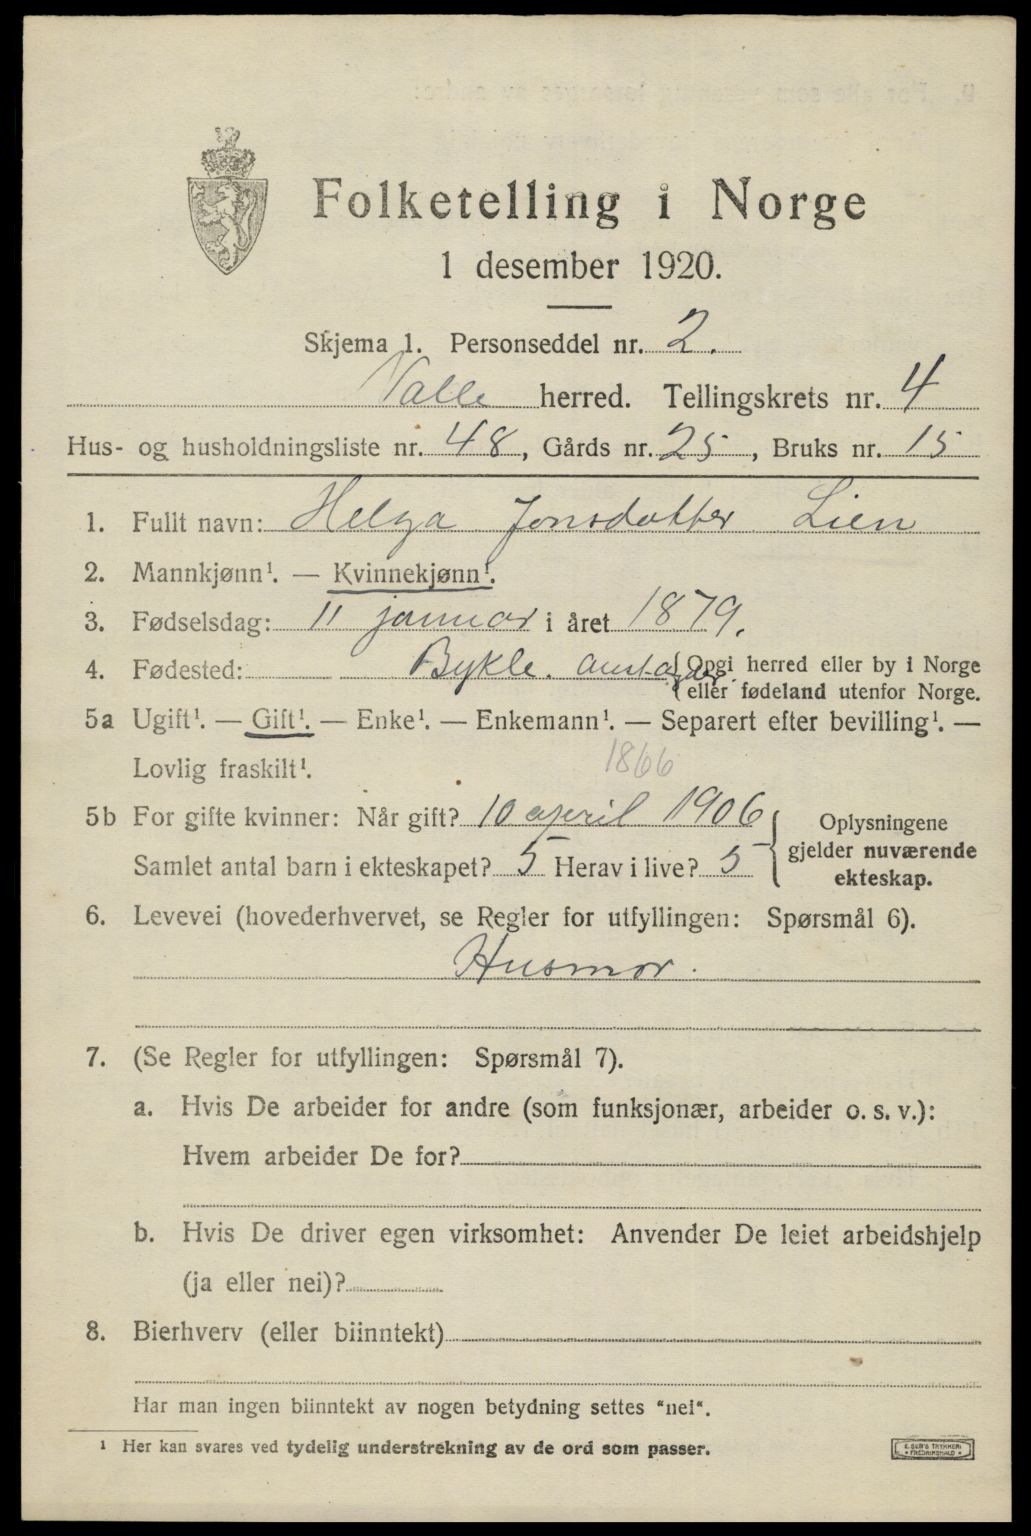 Folketelling i Norge
1 desember 1920.
Skjema 1. Personseddel nr. 2.
Valle herred. Tellingskrets nr. 4
Hus- og husholdningsliste nr. 48, Gårds nr. 25, Bruks nr. 15
1. Fullt navn: Helga Jonsdotter Lien
2. Mannkjønn¹. — Kvinnekjønn¹.
3. Fødselsdag: 11 januar i året 1879.
4. Fødested: Bykle. {Opgi herred eller by i Norge
eller fødeland utenfor Norge.
5a Ugift¹. — Gift¹. — Enke¹. — Enkemann¹. — Separert efter bevilling¹. —
Lovlig fraskilt¹. 1866
5b For gifte kvinner: Når gift? 10 april 1906
Samlet antal barn i ekteskapet? 5 Herav i live? 5
{ Oplysningene
gjelder nuværende
ekteskap.
6. Levevei (hovederhvervet, se Regler for utfyllingen: Spørsmål 6).
Husmor.
7. (Se Regler for utfyllingen: Spørsmål 7).
a. Hvis De arbeider for andre (som funksjonær, arbeider o. s. v.):
Hvem arbeider De for?
b. Hvis De driver egen virksomhet: Anvender De leiet arbeidshjelp
(ja eller nei)?
8. Bierhverv (eller biinntekt)
Har man ingen biinntekt av nogen betydning settes "nei".
¹ Her kan svares ved tydelig understrekning av de ord som passer.